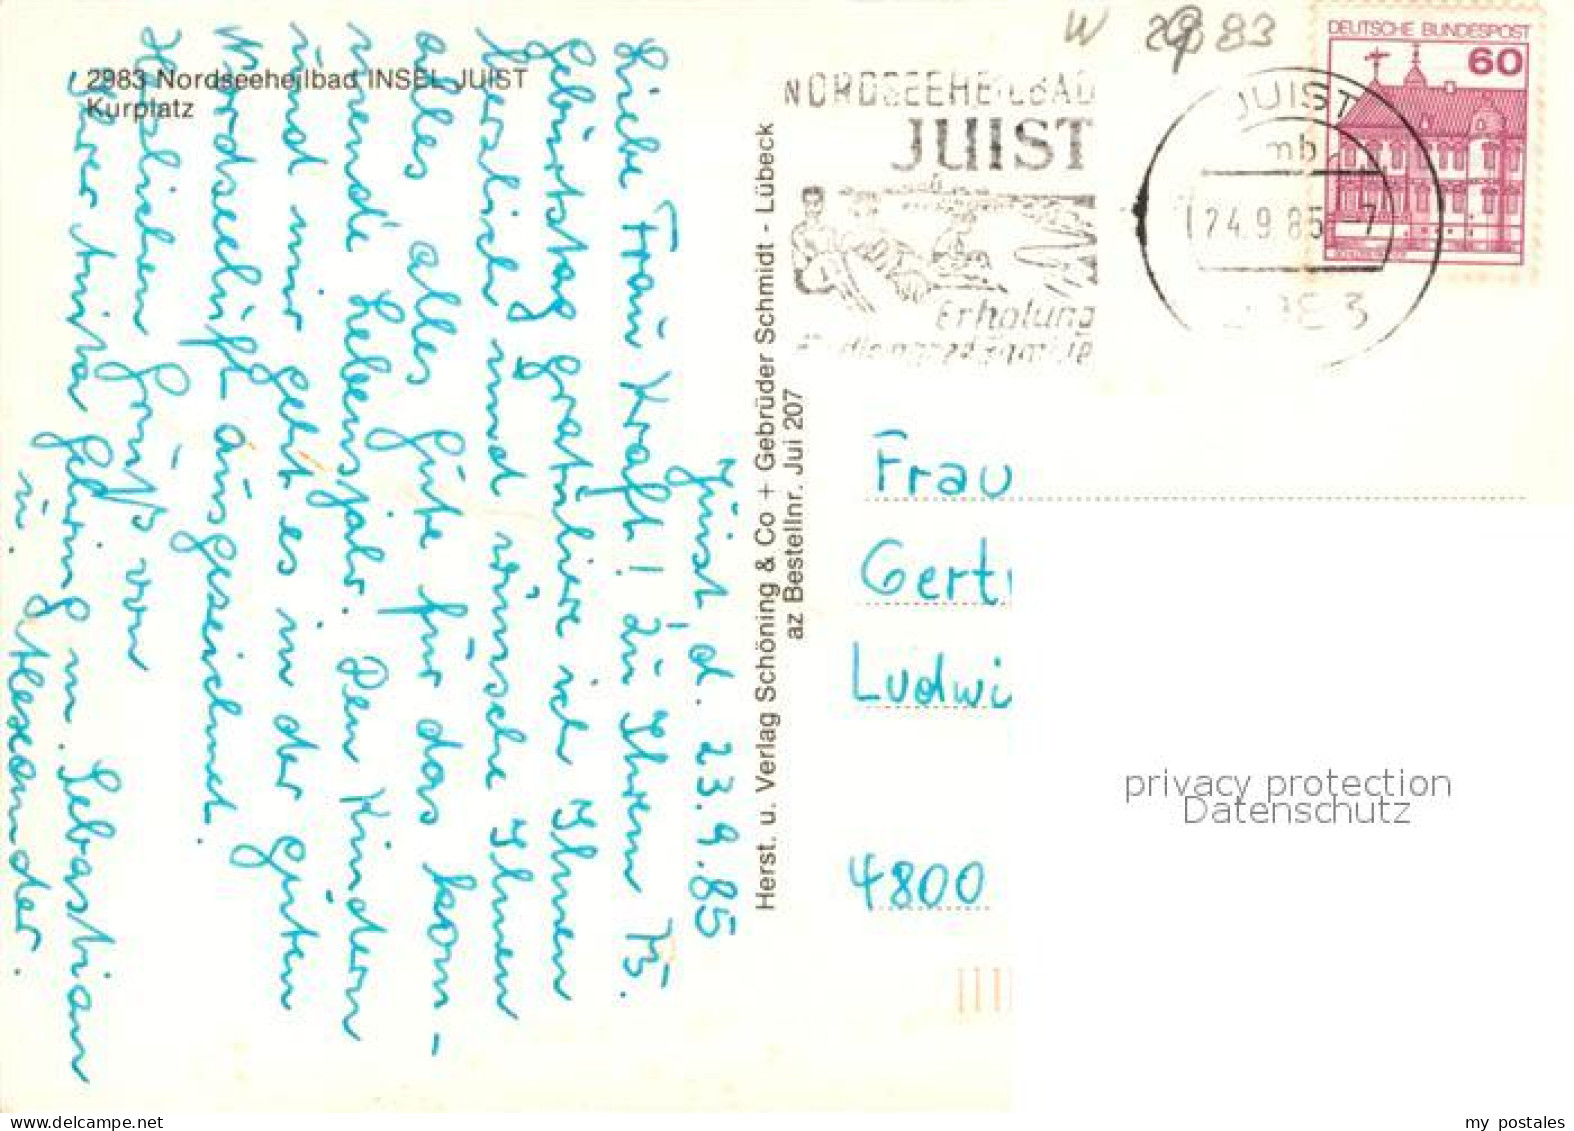 2983 Nordseeheilbad INSEL JUIST
Kurplatz
Juist, d. 23.9.85
Liebe Frau Kraft! Zu Ihrem 75.
Geburtstag gratuliere ich Ihnen
herzlich und wünsche Ihnen
alles alles Gute für das kom-
mende Lebensjahr. Den Kindern
und mir geht es in der guten
Nordseeluft ausgezeichnet.
Herzlichen Gruß von
Ihrer Gehring m. Sebastian
u. Alexander.
Herst. u. Verlag Schöning & Co + Gebrüder Schmidt - Lübeck
az Bestellnr. Jui 207
W 2983
NORDSEEHEILBAD
JUIST
Erholung
JUIST
mb
24.9.85-7
DEUTSCHE BUNDESPOST
60
Frau
Gert
Ludwi
4800
privacy protection
Datenschutz
my postales